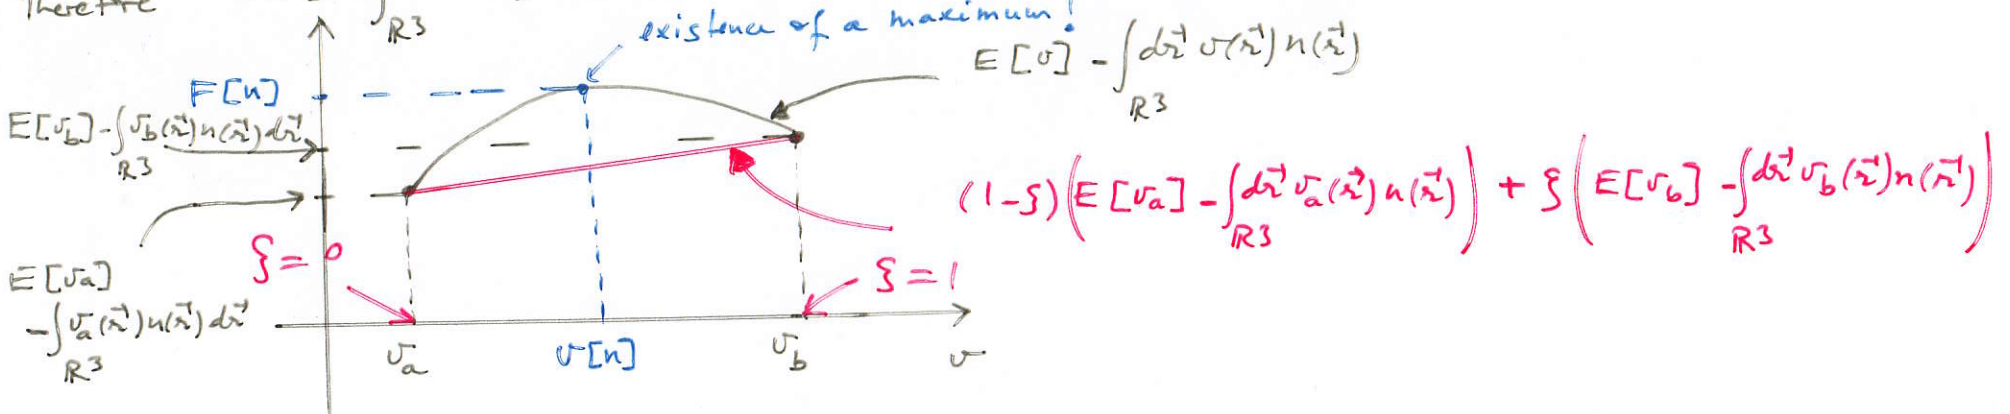 Therefore
∫_{R3}
existence of a maximum!
E[v] - ∫_{R3} dr⃗ v(r⃗) n(r⃗)
F[n]
E[v_b] - ∫_{R3} v_b(r⃗) n(r⃗) dr⃗
(1-ξ) (E[v_a] - ∫_{R3} dr⃗ v_a(r⃗) n(r⃗)) + ξ (E[v_b] - ∫_{R3} dr⃗ v_b(r⃗) n(r⃗))
ξ = 0
ξ = 1
E[v_a]
- ∫_{R3} v_a(r⃗) n(r⃗) dr⃗
v_a v[n] v_b v